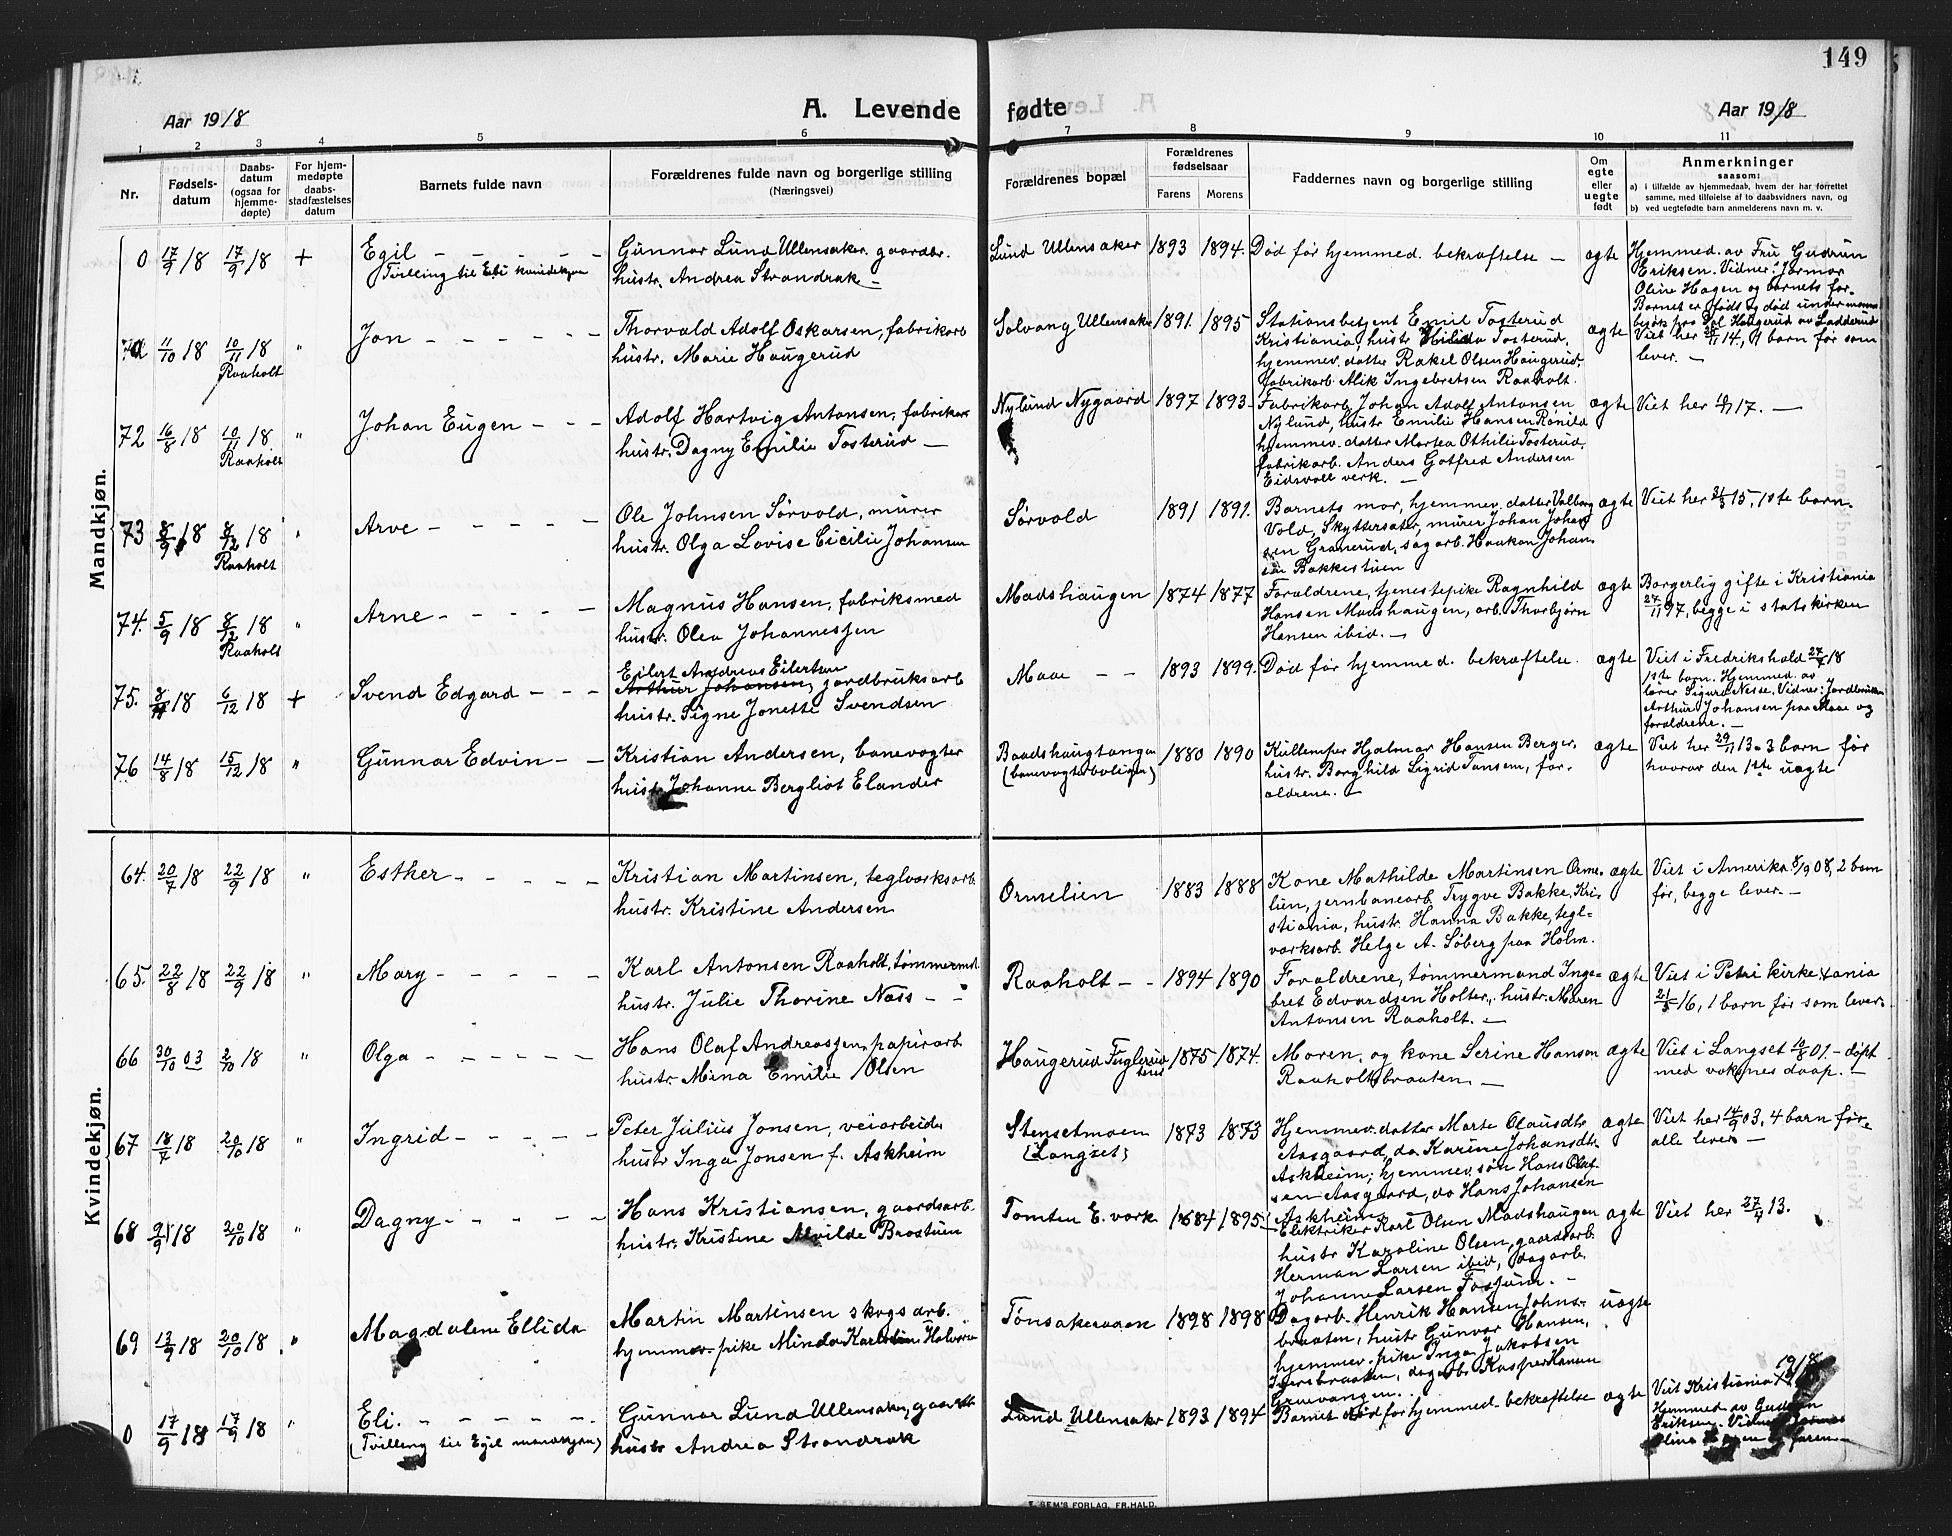 149
Aar 1918
A. Levende fødte
Aar 1918
1 2 3 4 5 6 7 8 9 10 11
Nr.
Fødsels-
datum
Daabs-
datum
(ogsaa for
hjemme-
døpte)
For hjem-
medøpte
daabs-
stadfæstelses
datum
Barnets fulde navn
Forældrenes fulde navn og borgerlige stilling
(Næringsvei)
Forældrenes bopæl
Forældrenes
fødselsaar
Farens Morens
Faddernes navn og borgerlige stilling
Om
egte
eller
uegte
født
Anmerkninger
saasom:
a) i tilfælde av hjemmedaab, hvem der har forrettet
samme, med tilføielse af to daabsvidners navn, og
b) ved uegtefødte barn anmelderens navn m. v.
Mandkjøn.
0 17/9 18 17/9 18 + Egil
Tvilling til Eli kvindekjøn
Gunnar Lund Ullensaker, gaardbr.
hustr. Andrea Strandrak
Lund Ullensaker 1893 1894.
Død før hjemmed. bekræftelse —
ægte
Hjemmed. av Fru Gudrun
Eriksen. Vidner: Jormor
Oline Hagen og barnets far.
Barnet er født og død under
11/10 18 10/11 18 " Jon
Raaholt
Thorvald Adolf Oskarsen, fabrikarb
hustr. Marie Haugerud
Solvang Ullensaker 1891. 1895
Stationsbetjent Emil Tosterud
Kristiania, hustr. Hilda Tosterud,
hjemmev. datte Rakel Olsen Haugerud,
fabrikarb. Alik Ingebretsen Raaholt.
ægte
lever. —
72 16/8 18 10/11 18 " Johan Eugen
Raaholt
Adolf Hartvig Antonsen, fabrikarb
hustr. Dagny Emilie Tosterud —
Nylund Nygaard 1897 1893
Fabrikarb. Johan Adolf Antonsen
Nylund, hustr Emilie Hansen Rønild
hjemmev. datter Martea Othilie Tosterud,
fabrikarb. Anders Gotfred Andersen
Eidsvoll verk. —
ægte
73 8/9 18 8/12 18 " Arve
Raaholt
Ole Johnsen Sørvold, murer
hustr. Olga Lovise Cicilie Johansen
Sørvold 1891 1891.
Barnets mor, hjemmev. datter Valborg
Vold, Skyttersæter, murer Johan Johan
sen Granerud, sagarb. Haakon Johan
sen Bakkestuen
ægte
74. 5/9 18 8/12 18 " Arne
Raaholt
Magnus Hansen, fabriksmed
hustr. Olea Johannessen
Madshaugen 1874 1877
Forældrene, tjenestepike Ragnhild
Hansen Madshaugen, arb. Thorbjørn
Hansen ibid. —
ægte
Borgerlig gifte i Kristiania
27/11 97, begge i statskirken
75. 18 6/12 18 + Svend Edgard
Eilert Andreas Eilertsen
Arthur Johansen, jordbruksarb
hustr. Signe Jonette Svendsen
Maae 1893 1899.
Død før hjemmed. bekræftelse.
ægte
Viet i Fredrikshald 18
1ste barn. Hjemmed. av
lærer Sigurd Nesse. Vidner: Jordbruksarb
Arthur Johansen paa Maae og
forældrene. —
76 14/8 18 15/12 18 " Gunnar Edvin
Kristian Andersen, banevogter
hustr. Johanne Bergliot Elander
Baadshaugtangen
(banevogterboligen)
1880 1890
Kullemper Hjalmar Hansen Berger,
hustr. Borghild Sigrid Tansem, for-
ældrene.
ægte
Viet her 29/11 13. 3 barn før
hvorav den 1ste uægte
Kvindekjøn.
64. 20/7 18 22/9 18 " Esther
Kristian Martinsen, teglværksarb.
hustr. Kristine Andersen
Ormelien 1883 1888
Kone Mathilde Martinsen Orme-
lien, jernbanearb. Trygve Bakke, Kri-
stiania, hustr. Hanna Bakke, tegl-
værksarb. Helge A. Søberg paa Holm.
ægte
Viet i Amerika 8/9 08, 2 barn
før, begge lever. —
65. 22/8 18 22/9 18 " Mary
Karl Antonsen Raaholt, tømmermd.
hustr. Julie Thorine Næss
Raaholt 1894 1890
Forældrene, tømmermand Inge-
bret Edvardsen Holter, hustr. Maren
Antonsen Raaholt. —
ægte
Viet i Petri kirke Xania
21/5 16, 1 barn før som lever.
66 30/10 03 2/10 18 " Olga
Hans Olaf Andreassen, papirarb
hustr. Mina Emilie Olsen
Haugerud 1875 1874.
Moren, og kone Serine Hansen
Raaholtsbraaten —
ægte
Viet i Langset 01. — døpt
med voksnes daap. —
67 18/7 18 20/10 18 " Ingrid
Peter Julius Jonsen, veiarbeider
hustr Inga Jonsen f. Askheim
Stensetmoen
(Langset)
1873 1873
Hjemmev. datter Marte Olausdtr
Aasgaard, do Karine Johansdtr.
Askheim; hjemmev. søn Hans Olaf-
sen Aasgaard, do Hans Johansen
Askheim
ægte
Viet her 14/9 03, 4 barn før
alle lever —
68 9/9 18 20/10 18 " Dagny
Hans Kristiansen, gaardsarb.
hustr. Kristine Alvilde Brostuen
Tomten E. værk 1884 1895
Elektriker Karl Olsen Madshaugen
hustr Karoline Olsen, gaardsarb.
Herman Larsen ibid, dagarb.
Johannes Larsen Fossum. —
ægte
Viet her 27/4 13.
69 13/9 18 20/10 18 " Magdalene Ellida
Martin Martinsen skogsarb.
hjemmev. pike Minda
1898 1898
Dagarb. Henrik Hansen Johns-
braaten, hustr Gunvor Hansen,
hjemmev. pike Inga Jakobsen
uægte
0 17/9 18 17/9 18 " Eli.
(Tvilling til Egil mandkjøn)
Gunnar Lund Ullensaker, gaardbr
hustr Andrea Strandrak
Lund Ullensaker 1893 1894
Barnet død før hjemmed. bekræftelse
ægte
Viet Kristiania 1918
Hjemmed av Gudrun
Eriksen.
E. SEM'S FORLAG, FR.HALD.